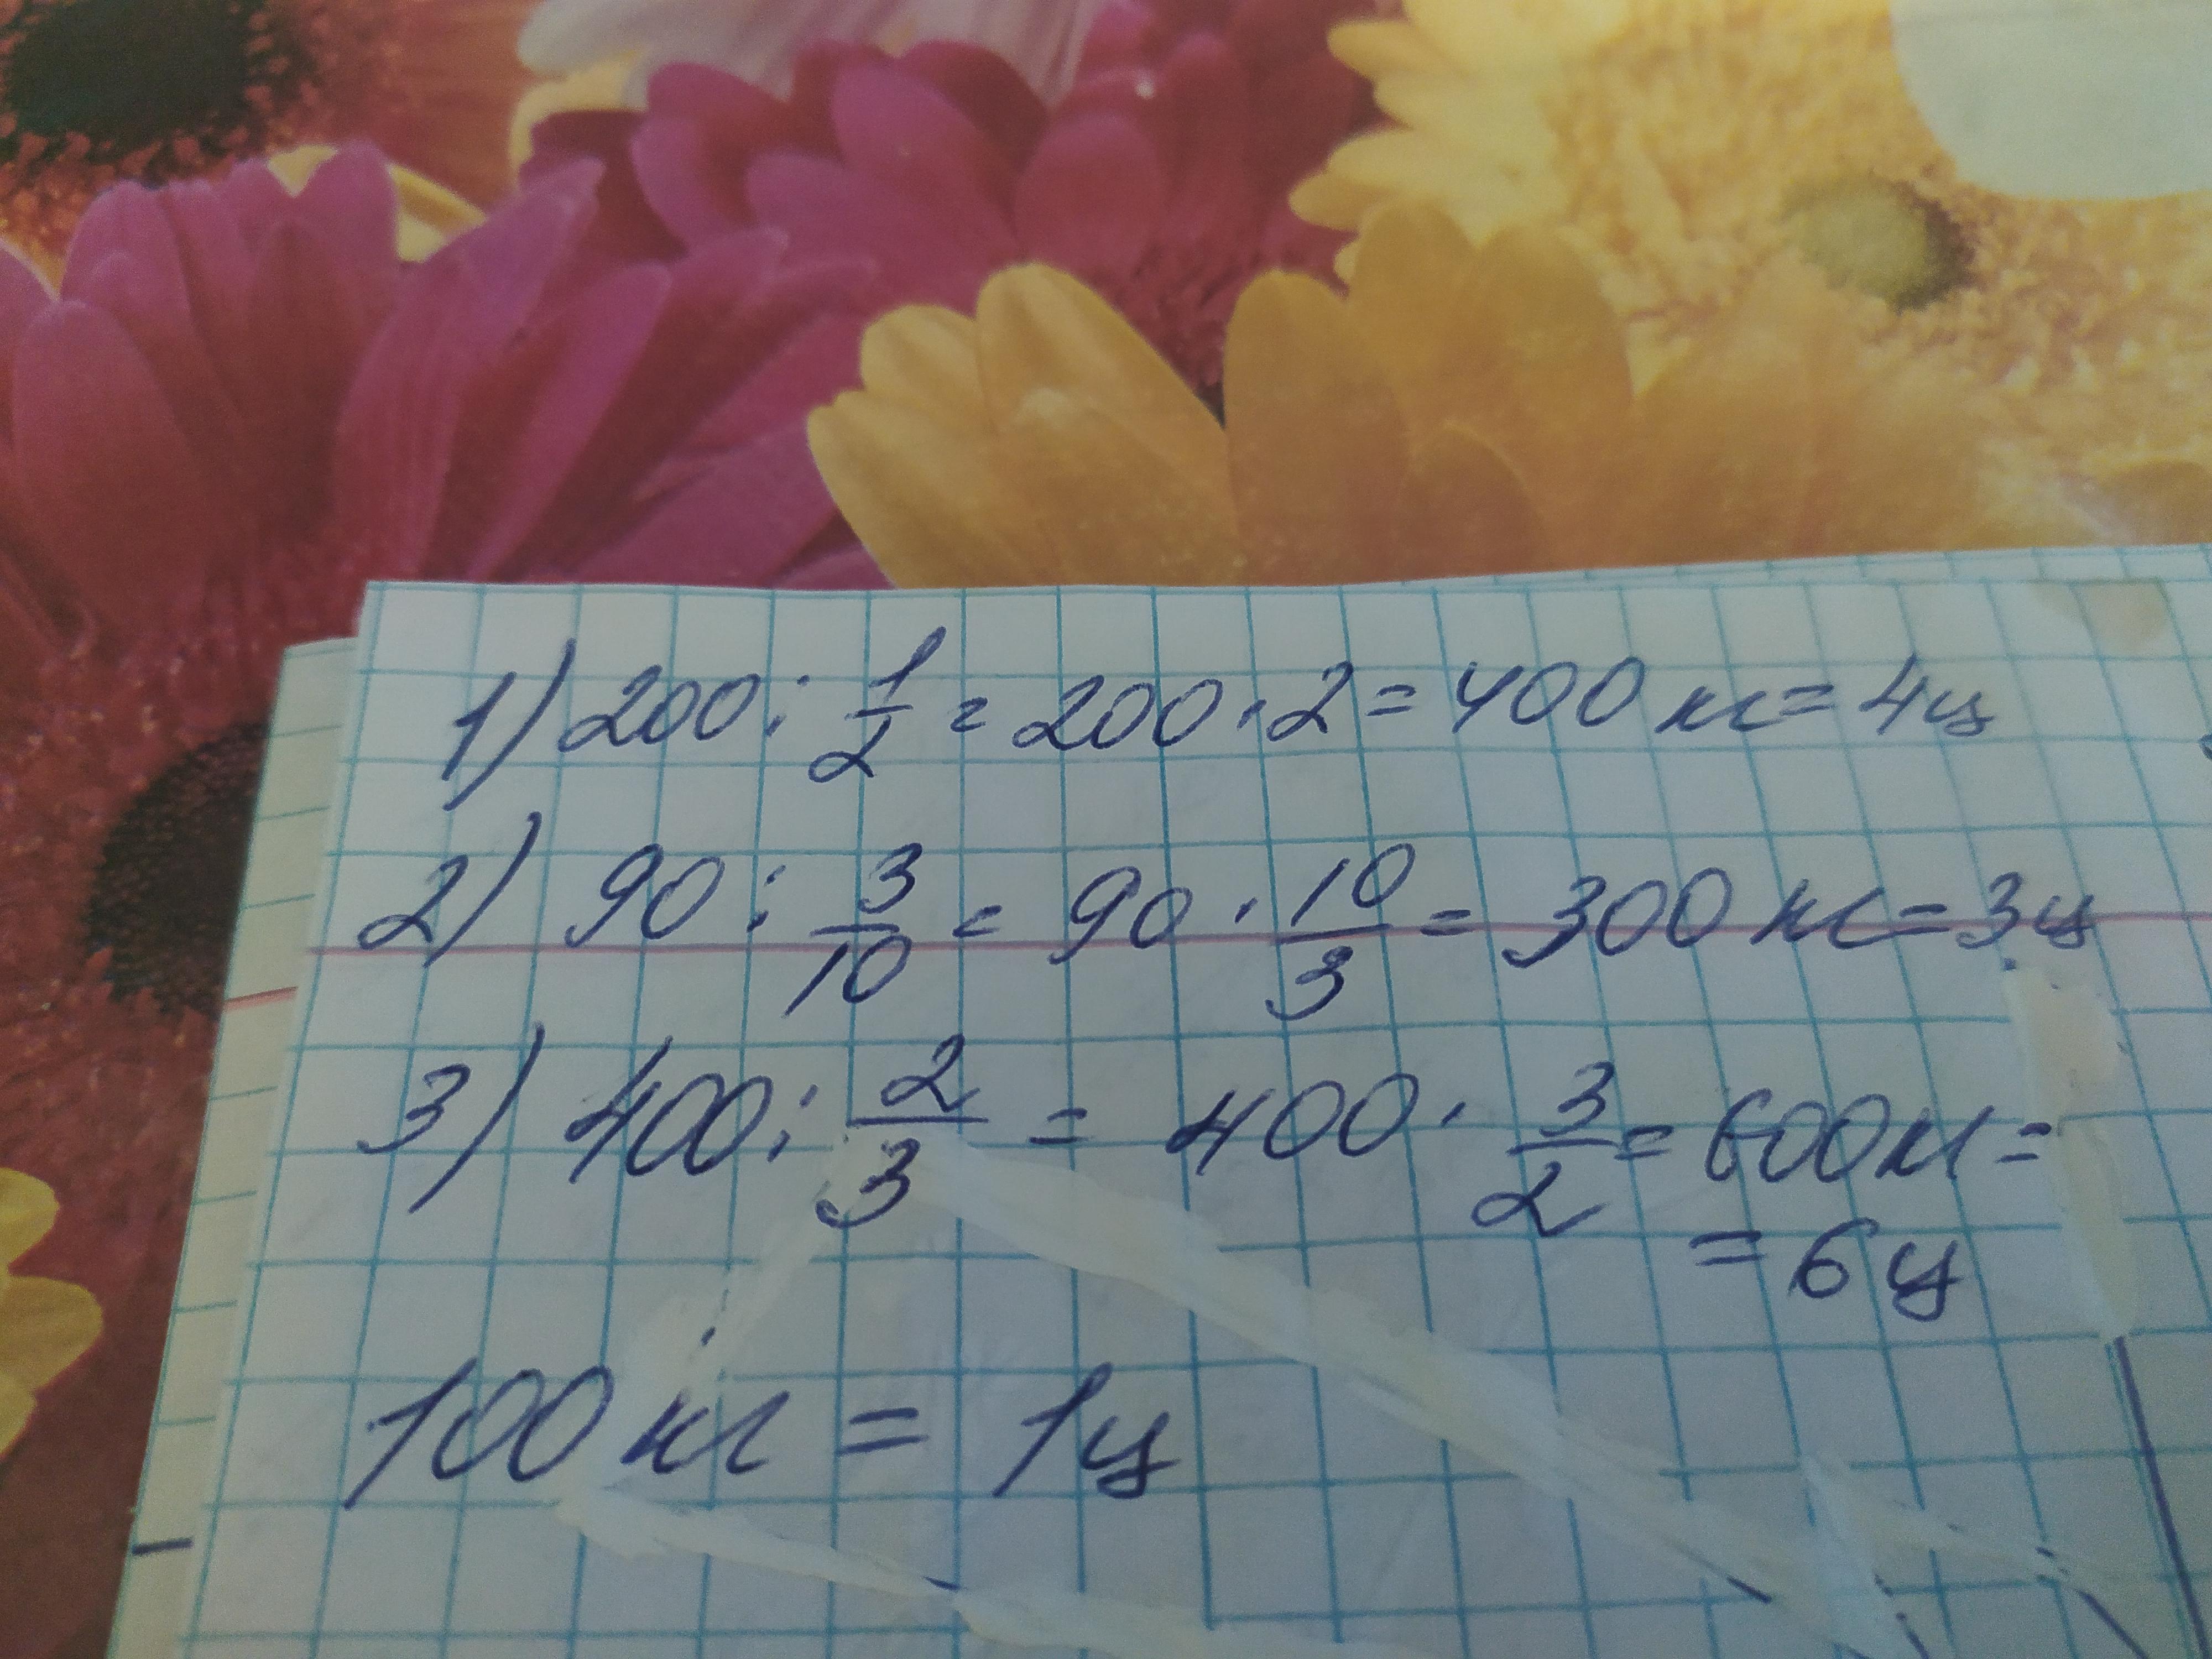 1) 200 : 1/2 = 200 · 2 = 400 кг = 4ц
2) 90 : 3/10 = 90 · 10/3 = 300 кг = 3ц
3) 400 : 2/3 = 400 · 3/2 = 600 кг =
= 6 ц
100 кг = 1ц